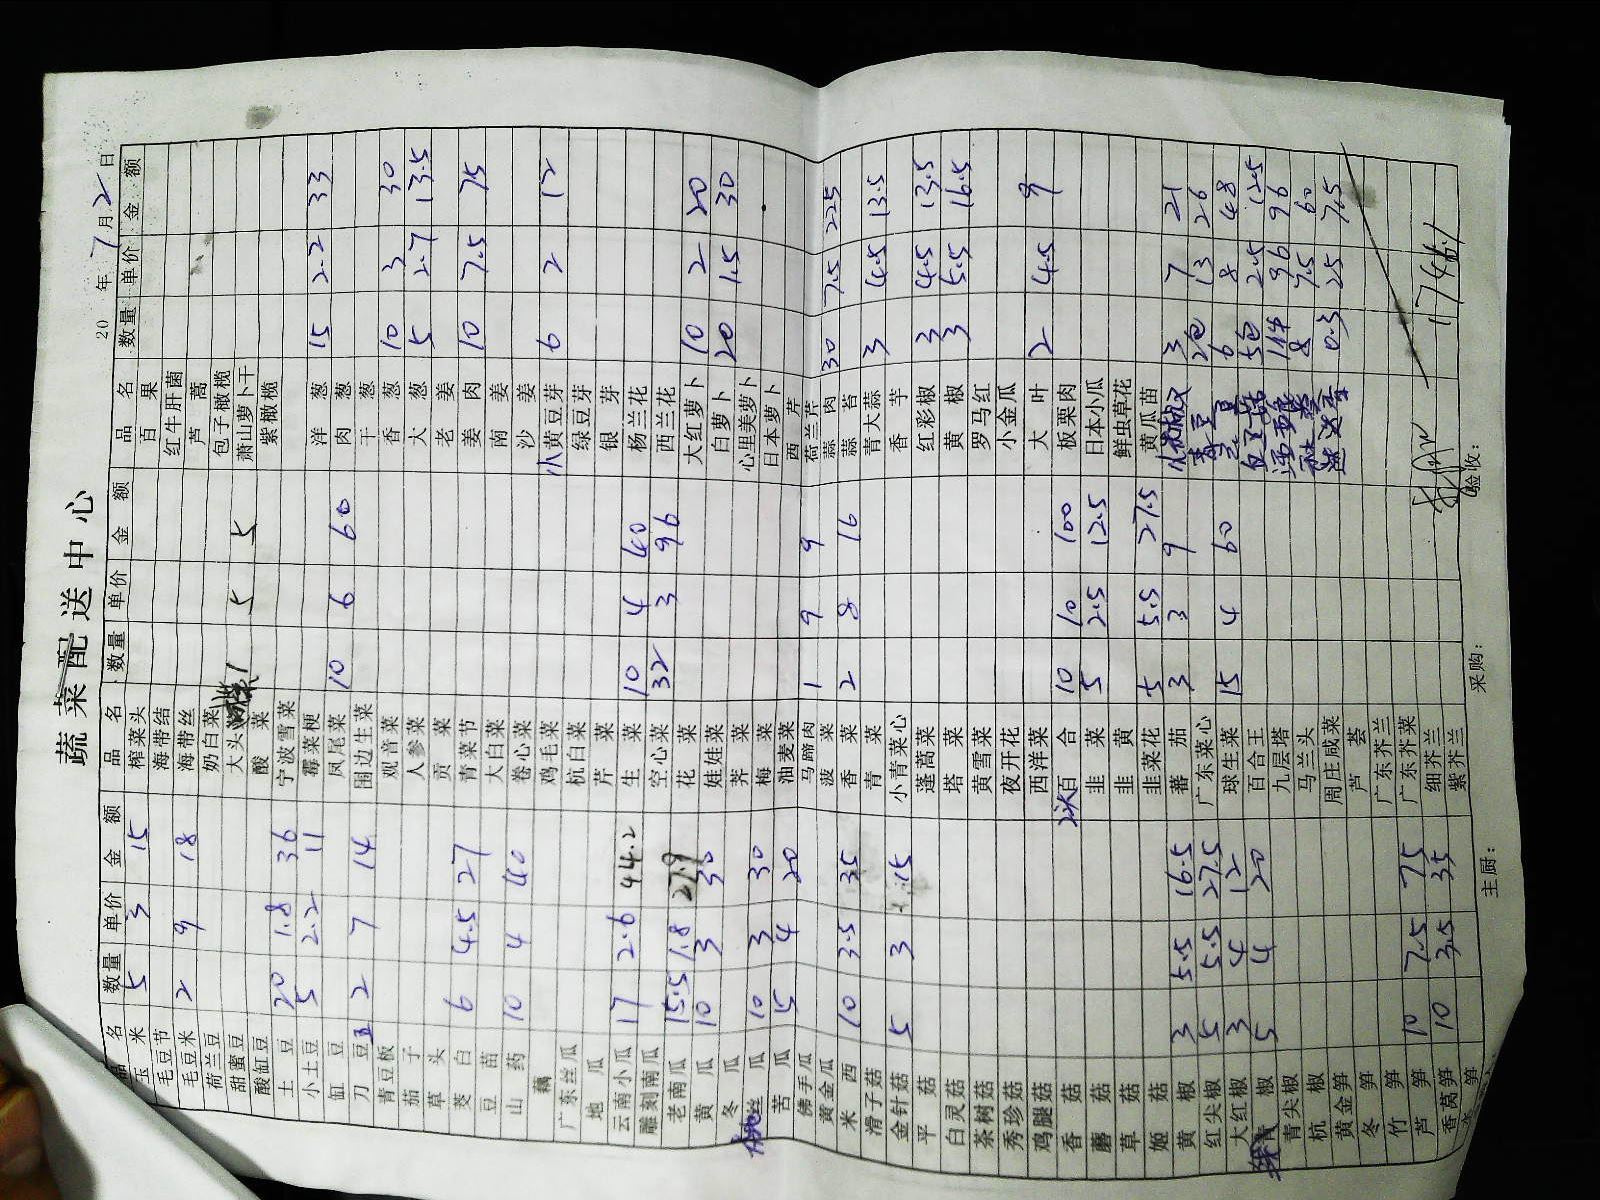 蔬菜配送中心
20 年 7 月 2 日
品名 数量 单价 金额 品名 数量 单价 金额 品名 数量 单价 金额
玉米 5 3 15 榨菜头 百果
毛豆节 海带结 红牛肝菌
毛豆米 2 9 18 海带丝 芦蒿
荷兰豆 奶白菜 包子橄榄
甜蜜豆 大头 1 5 5 萧山萝卜干
酸缸豆 酸菜 紫橄榄
土豆 20 1.8 36 宁波雪菜
小土豆 5 2.2 11 霉菜梗 洋葱 15 2.2 33
缸豆 凤尾菜 10 6 60 肉葱
刀豆 2 7 14 围边生菜 干葱
青豆板 观音菜 香葱 10 3 30
茄子 人参菜 大葱 5 2.7 13.5
草头 贡菜 老姜
茭白 6 4.5 27 青菜节 姜肉 10 7.5 75
豆苗 大白菜 南姜
山药 10 4 40 卷心菜 沙姜
藕 鸡毛菜 小黄豆芽 6 2 12
广东丝瓜 杭白菜 绿豆芽
地瓜 芹菜 银芽
云南小瓜 17 2.6 44.2 生菜 10 4 40 杨兰花
雕刻南瓜 空心菜 32 3 96 西兰花
老南瓜 15.5 1.8 27.9 花菜 大红萝卜 10 2 20
黄瓜 10 3 30 娃娃菜 白萝卜 20 1.5 30
冬瓜 荠菜 心里美萝卜
丝瓜 10 3 30 梅菜 日本萝卜
苦瓜 5 4 20 油麦菜 西芹
佛手瓜 马蹄肉 1 9 9 荷兰芹
黄金瓜 菠菜 蒜肉 30 7.5 225
米西 10 3.5 35 香菜 2 8 16 蒜苔
滑子菇 青菜 青大蒜 3 4.5 13.5
金针菇 5 3 15 小青菜心 香芋
平菇 蓬蒿菜 红彩椒 3 4.5 13.5
白灵菇 塔菜 黄椒 3 5.5 16.5
茶树菇 黄雪菜 罗马红
秀珍菇 夜开花 小金瓜
鸡腿菇 西洋菜 大叶 2 4.5 9
香菇 百合 10 10 100 板栗肉
蘑菇 韭菜 5 2.5 12.5 日本小瓜
草菇 韭黄 鲜虫草花
姬菇 韭菜花 5 5.5 27.5 黄瓜苗
黄椒 3 5.5 16.5 蕃茄 3 3 9 3 7 21
红尖椒 5 5.5 27.5 广东菜心 青豆 2包 13 26
大红椒 3 4 12 球生菜 15 4 60 6 8 48
青椒 5 4 20 百合王 5包 2.5 12.5
青尖椒 九层塔 96 96
杭椒 马兰头 8 7.5 60
黄金笋 周庄咸菜 0.3 25 7.5
冬笋 芦荟
竹笋 广东芥兰
芦笋 10 7.5 75 广东芥菜
香莴笋 10 3.5 35 细芥兰 1746.1
笋 紫芥兰
主厨: 采购: 验收: